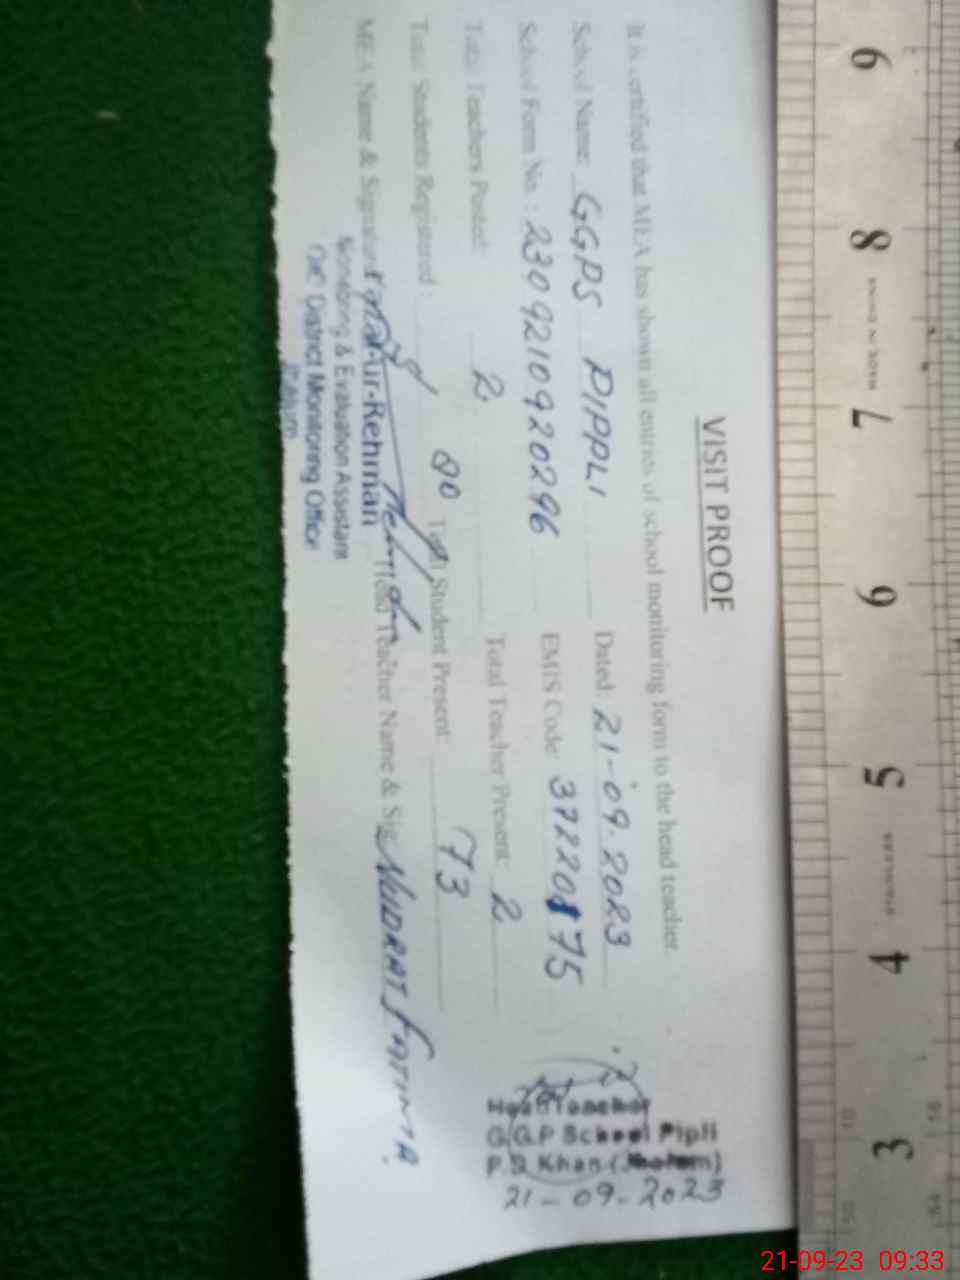 VISIT PROOF
It is certified that MEA has shown all entries of school monitoring form to the head teacher.
School Name: GGPS PIPPLI Dated: 21-09-2023
School Form No.: 2309210920296 EMIS Code: 37220175
Total Teachers Posted: 2 Total Teacher Present: 2
Total Students Registered: 80 Total Student Present: 73
MEA Name & Signature ur-Rehman Head Teacher Name & Sig: NUDRAT FATIMA.
Monitoring & Evaluation Assistant
O/O District Monitoring Office
Head Teacher
G.G.P School Pipli
P.D. Khan (Jhelum)
21-09-2023
6
8
7
9
5
4
3
21-09-23 09:33